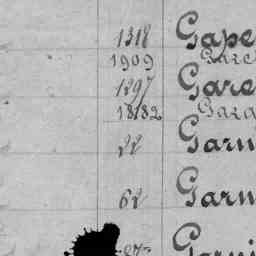 1318 Gape
1909 Gare
1297 Gare
18182 Garg
22 Garni
62 Garn
Garni